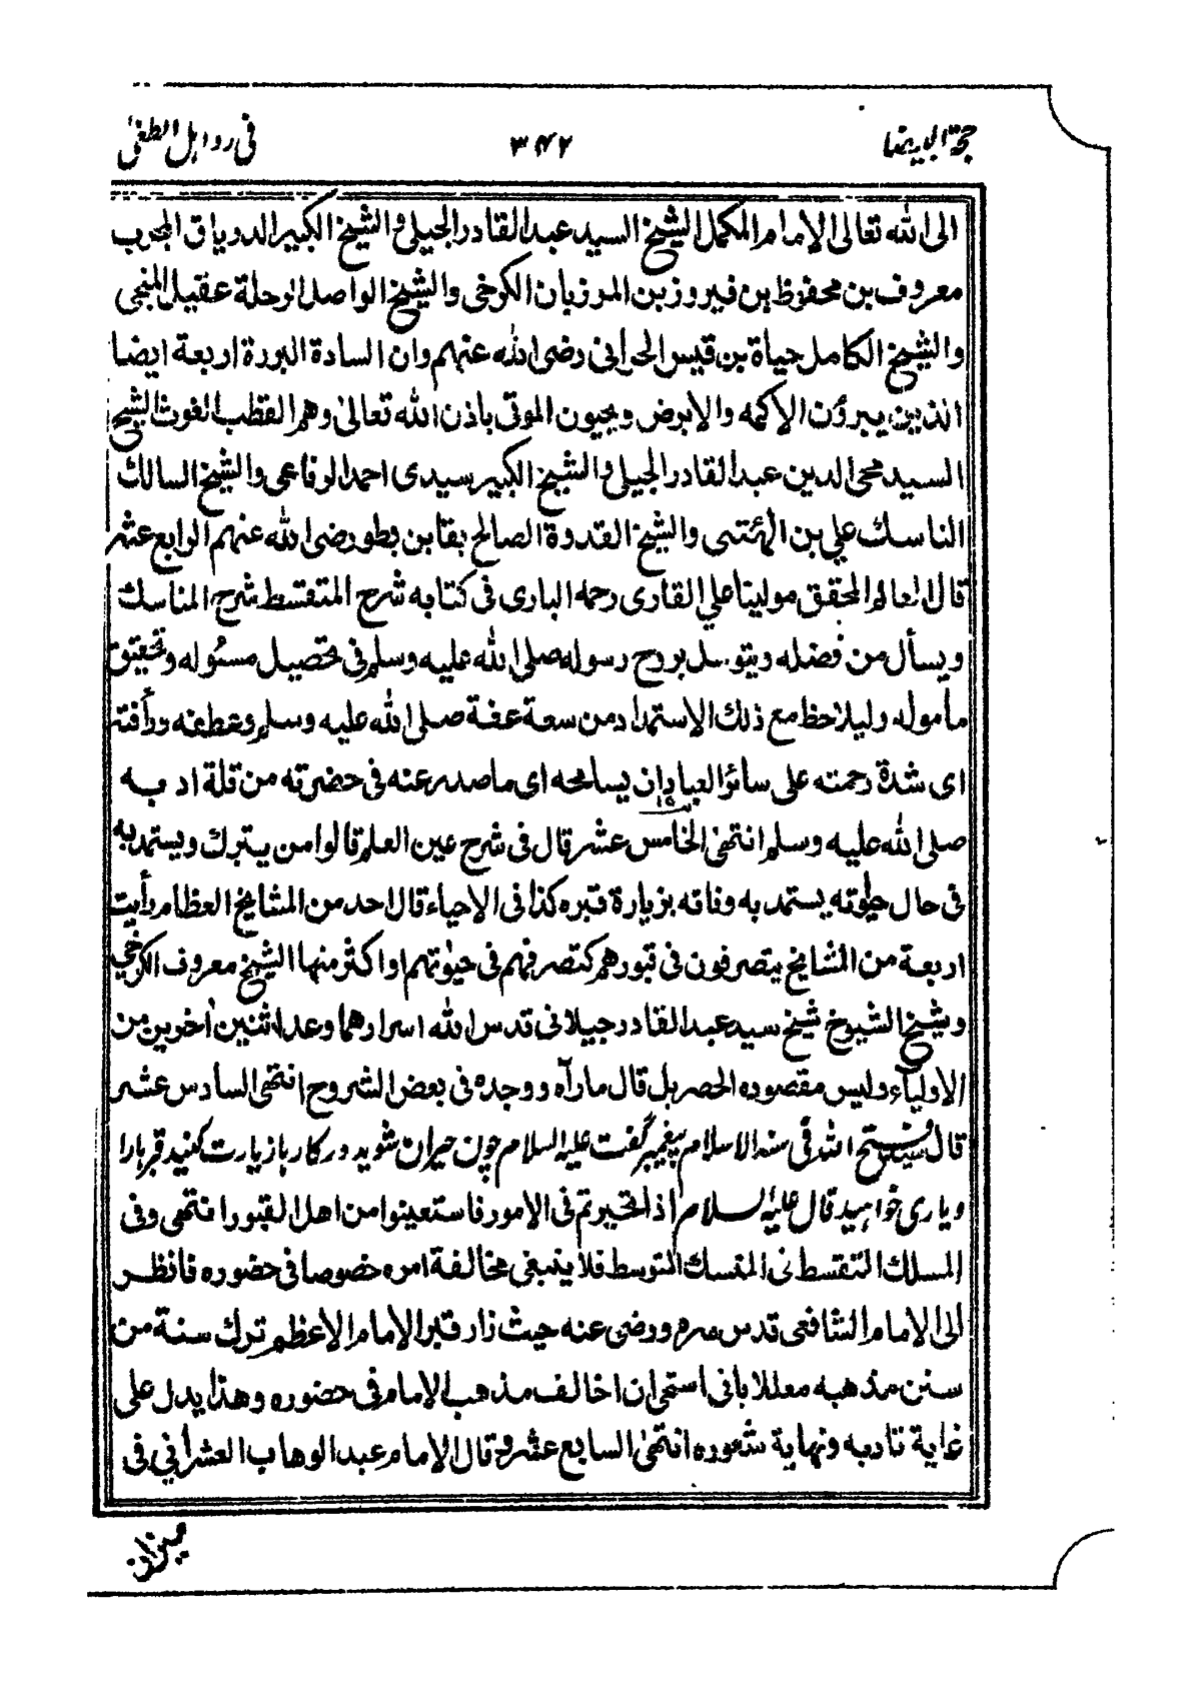 حجة البيضا ٣٤٢ فى رد اهل الطغى
الى الله تعالى الامام المكمل الشيخ السيد عبد القادر الجيلى والشيخ الكبير الدرياق المجرب
معروف بن محفوظ بن فيروز بن المرزبان الكرخى والشيخ الواصل الرحلة عقيل المنبجى
والشيخ الكامل حياة بن قيس الحرانى رضى الله عنهم وان السادة البررة اربعة ايضا
الذين يبرؤن الاكمه والابرض ويحيون الموتى باذن الله تعالىٰ وهم القطب الغوث الشيخ
السيد محى الدين عبد القادر الجيلى والشيخ الكبير سيدى احمد الرفاعى والشيخ السالك
الناسك على بن الهئتى والشيخ القدوة الصالح بقا بن بطو رضى الله عنهم الرابع عشر
قال العالم المحقق مولينا على القارى رحمه البارى فى كتابه شرح المتقسط شرح المناسك
ويسأل من فضله ويتوسل بروح رسوله صلى الله عليه وسلم فى تحصيل مسئوله وتحقيق
مأموله وليلاحظ مع ذلك الاستمداد من سعة عفة صلى الله عليه وسلم وعطفه ورأفته
اى شدة رحمته على سائر العباد ان يسامحه اى ما صدر عنه فى حضرته من قلة ادبه
صلى الله عليه وسلم انتهىٰ الخامس عشر قال فى شرح عين العلم قالوا من يتبرك ويستمد به
فى حال حيٰوته يستمد به وفاته بزيارة قبره كذا فى الاحياء قال احد من المشايخ العظام رأيت
اربعة من المشايخ يتصرفون فى قبورهم كتصرفهم فى حيٰوتهم او اكثر منها الشيخ معروف الكرخى
وشيخ الشيوخ شيخ سيد عبد القادر جيلانى قدس الله اسرارهما وعد اثنين اٰخرين من
الاولياء وليس مقصوده الحصر بل قال ما رآه ووجده فى بعض الشروح انتهى السادس عشر
قال شيخ فتح الله فى سنه الاسلام پيغمبر گفت عليه السلام چون حيران شويد در كار با زيارت كنيد قبر ها را
ويارى خواهيد قال عليه السلام اذا تحيرتم فى الامور فاستعينوا من اهل القبور انتهى وفى
المسلك التقسط فى المنسك المتوسط فلا ينبغى مخالفة امره خصوصا فى حضوره فانظر
الى الامام الشافعى قدس سره ورضى عنه حيث زار قبر الامام الاعظم ترك سنة من
سنن مذهبه معللا بانى استحى ان اخالف مذهب الامام فى حضوره وهذا يدل على
غاية تادبه ونهاية شعوره انتهىٰ السابع عشر وقال الامام عبد الوهاب العشرانى فى
ميزان